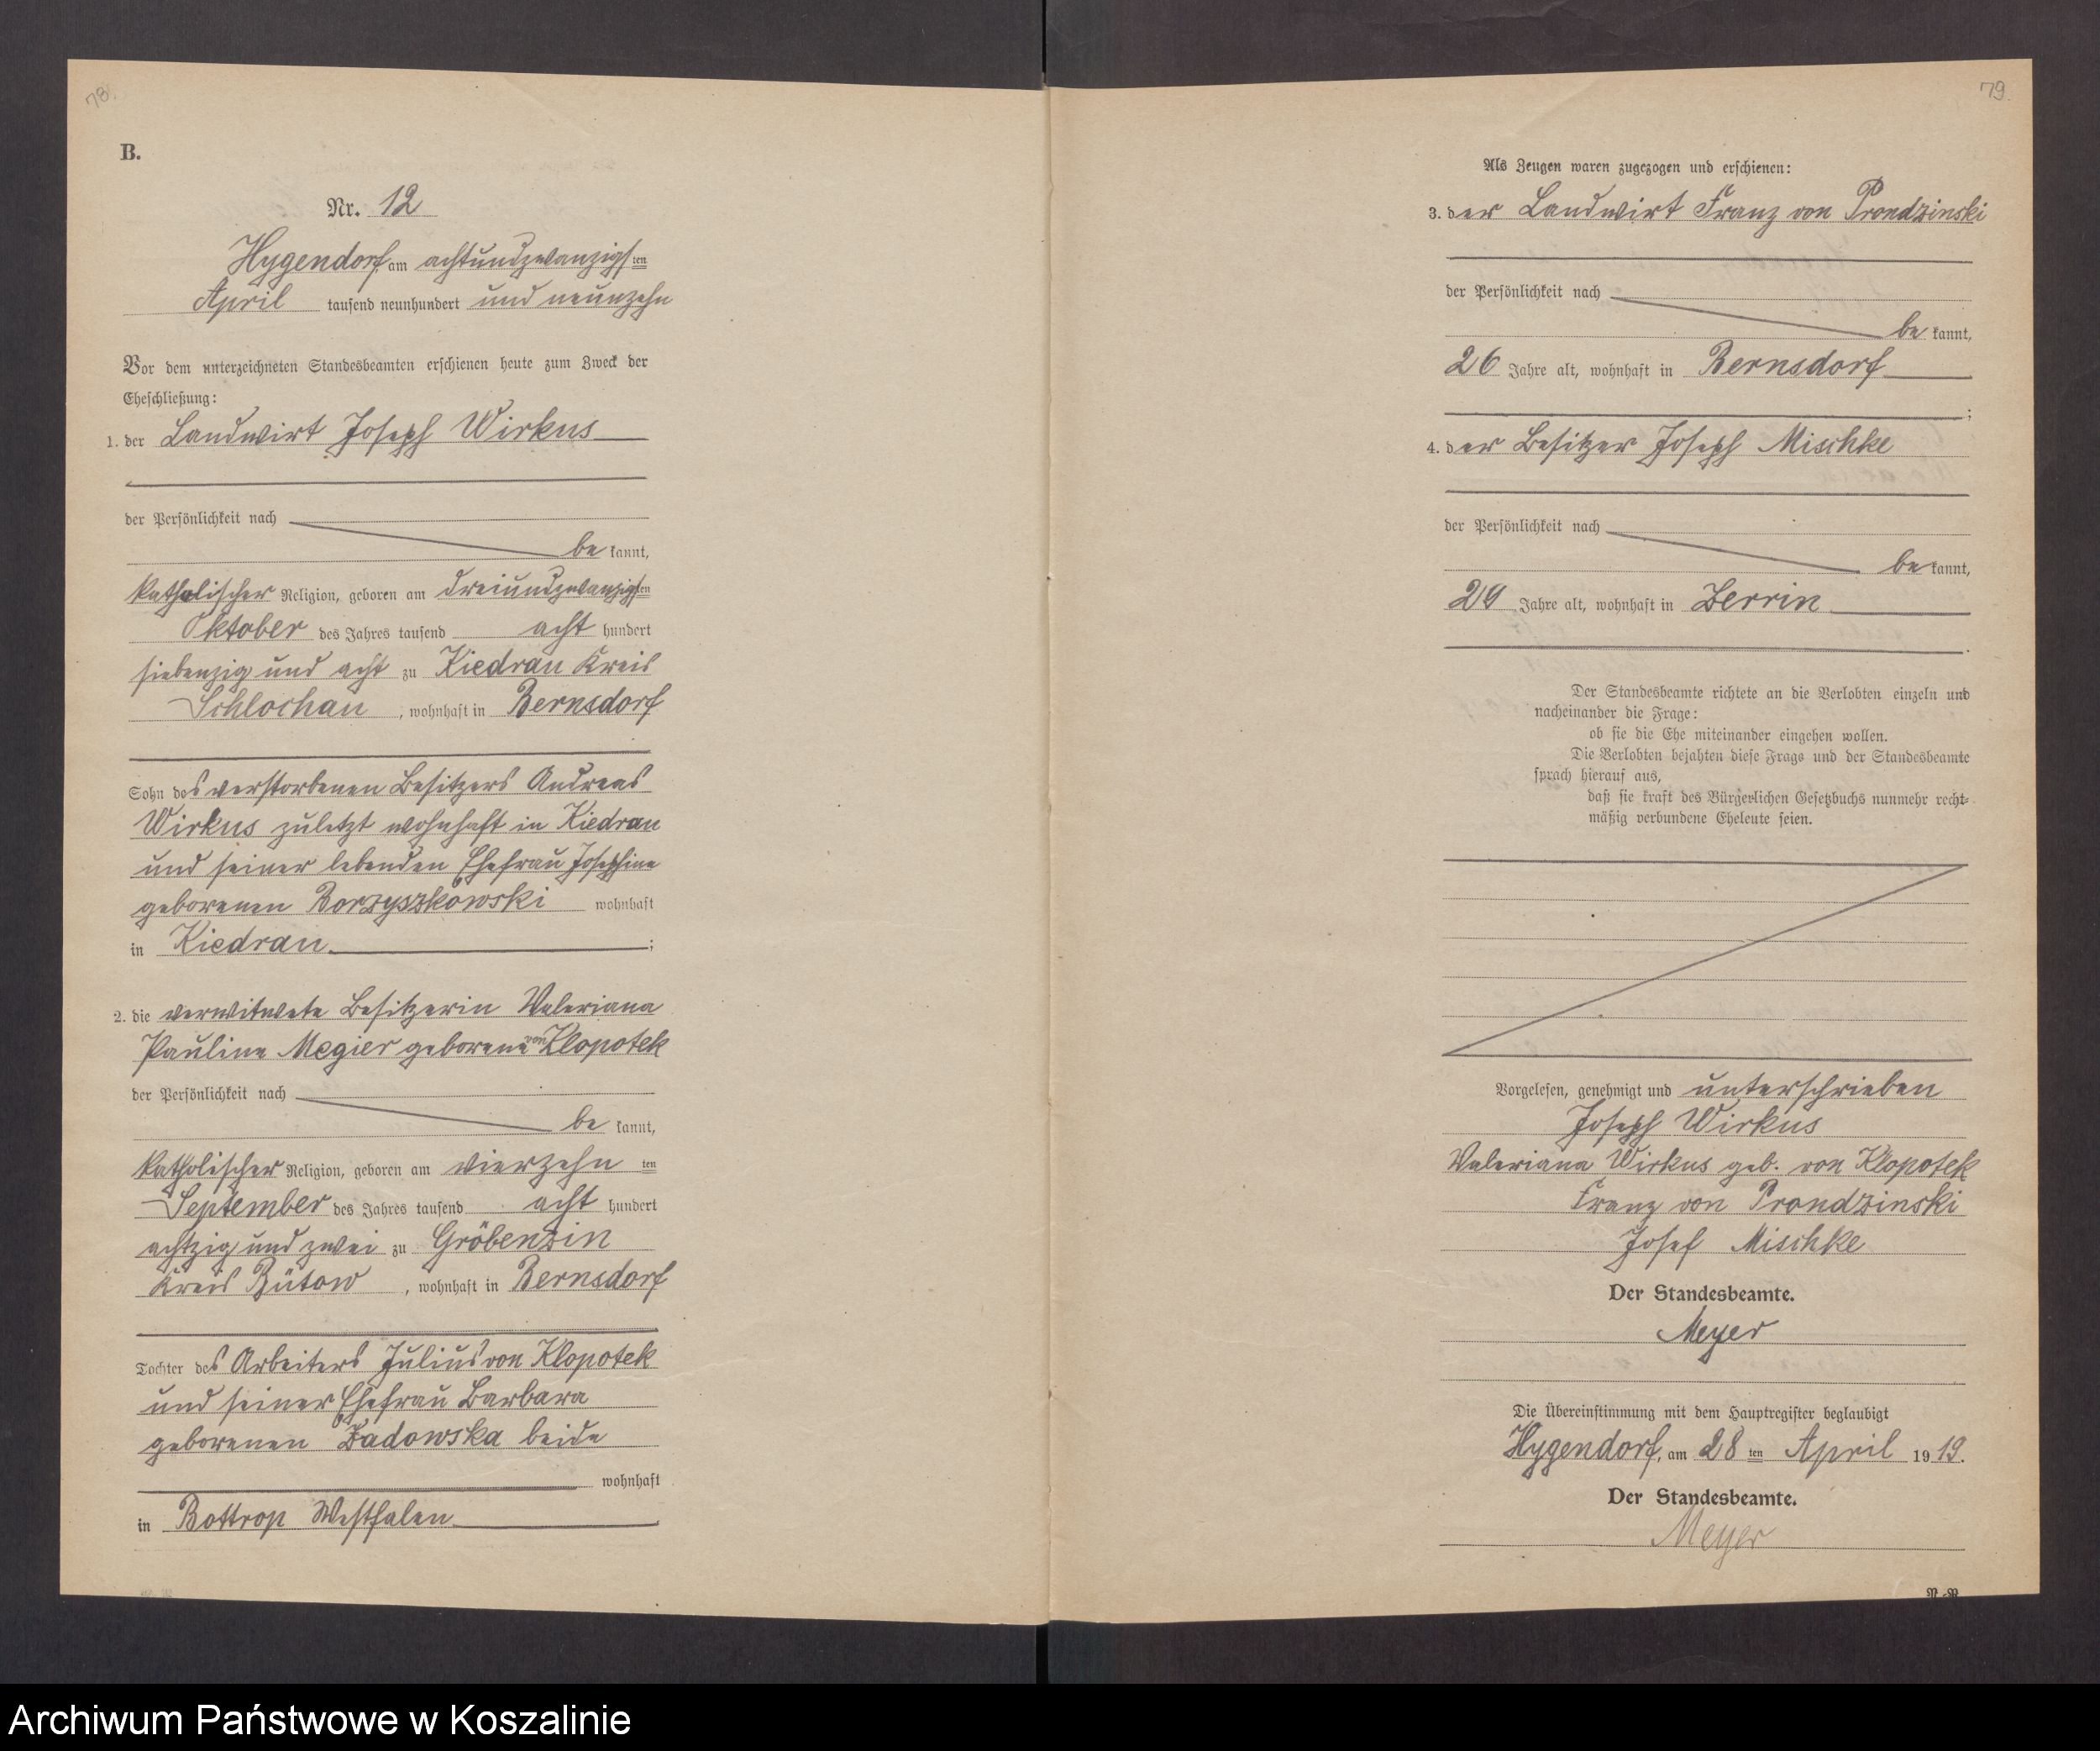 78.
B.
Nr. 12
Hygendorf, am achtundzwanzigsten
April tausend neunhundert und neunzehn
Vor dem unterzeichneten Standesbeamten erschienen heute zum Zweck der
Eheschließung:
1. der Landwirt Joseph Wirkus
der Persönlichkeit nach
be kannt,
katholischer Religion, geboren am dreiundzwanzigsten
Oktober des Jahres tausend acht hundert
siebenzig und acht zu Kiedrau Kreis
Schlochau, wohnhaft in Bernsdorf
Sohn des verstorbenen Besitzers Andreas
Wirkus zuletzt wohnhaft in Kiedrau
und seiner lebenden Ehefrau Josephine
geborenen Borzyszkowski wohnhaft
in Kiedrau ;
2. die verwitwete Besitzerin Valeriana
Pauline Megier geborene von Klopotek
der Persönlichkeit nach
be kannt,
katholischer Religion, geboren am vierzehn ten
September des Jahres tausend acht hundert
achtzig und zwei zu Gröbenzin
Kreis Bütow, wohnhaft in Bernsdorf
Tochter des Arbeiters Julius von Klopotek
und seiner Ehefrau Barbara
geborenen Zadowska beide
wohnhaft
in Bottrop Westfalen
79.
Als Zeugen waren zugezogen und erschienen:
3. der Landwirt Franz von Prondzinski
der Persönlichkeit nach
be kannt,
26 Jahre alt, wohnhaft in Bernsdorf
;
4. der Besitzer Joseph Mischke
der Persönlichkeit nach
be kannt,
29 Jahre alt, wohnhaft in Zerrin
.
Der Standesbeamte richtete an die Verlobten einzeln und
nacheinander die Frage:
ob sie die Ehe miteinander eingehen wollen.
Die Verlobten bejahten diese Frage und der Standesbeamte
sprach hierauf aus,
daß sie kraft des Bürgerlichen Gesetzbuchs nunmehr recht-
mäßig verbundene Eheleute seien.
Vorgelesen, genehmigt und unterschrieben
Joseph Wirkus
Valeriana Wirkus geb. von Klopotek
Franz von Prondzinski
Josef Mischke
Der Standesbeamte.
Meyer
Die Übereinstimmung mit dem Hauptregister beglaubigt
Hygendorf, am 28 ten April 19 19.
Der Standesbeamte.
Meyer
Archiwum Państwowe w Koszalinie